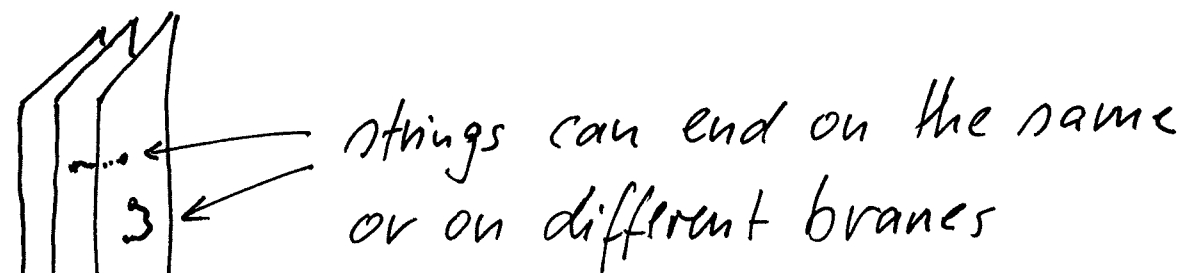 strings can end on the same
or on different branes